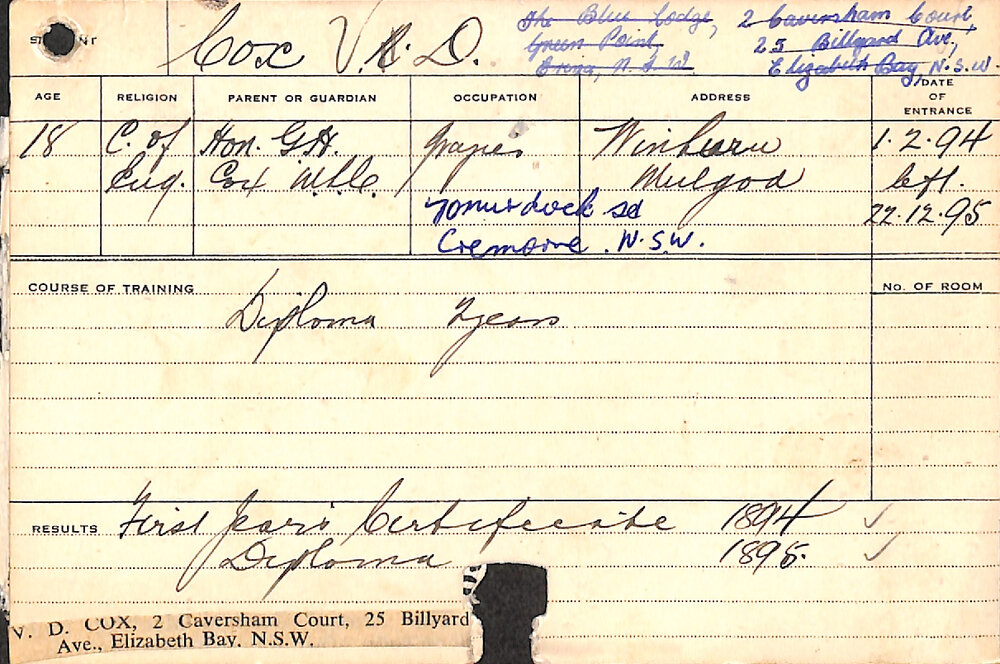 Cox V. D.
The Blue Lodge,
Green Point,
Erina, N.S.W
2 Caversham Court
25 Billyard Ave,
Elizabeth Bay, N.S.W.
AGE
RELIGION
PARENT OR GUARDIAN
OCCUPATION
ADDRESS
DATE
OF
ENTRANCE
18
C. of
Eng.
Hon. G.H.
Cox M.L.C.
Winburn
Mulgoa
1.2.94
left.
22.12.95
70 Murdock St
Cremorne. N.S.W.
COURSE OF TRAINING
No. OF ROOM
Diploma 2 years
RESULTS First year's Certificate 1894 ✓
Diploma 1895. ✓
V. D. COX, 2 Caversham Court, 25 Billyard
Ave., Elizabeth Bay, N.S.W.